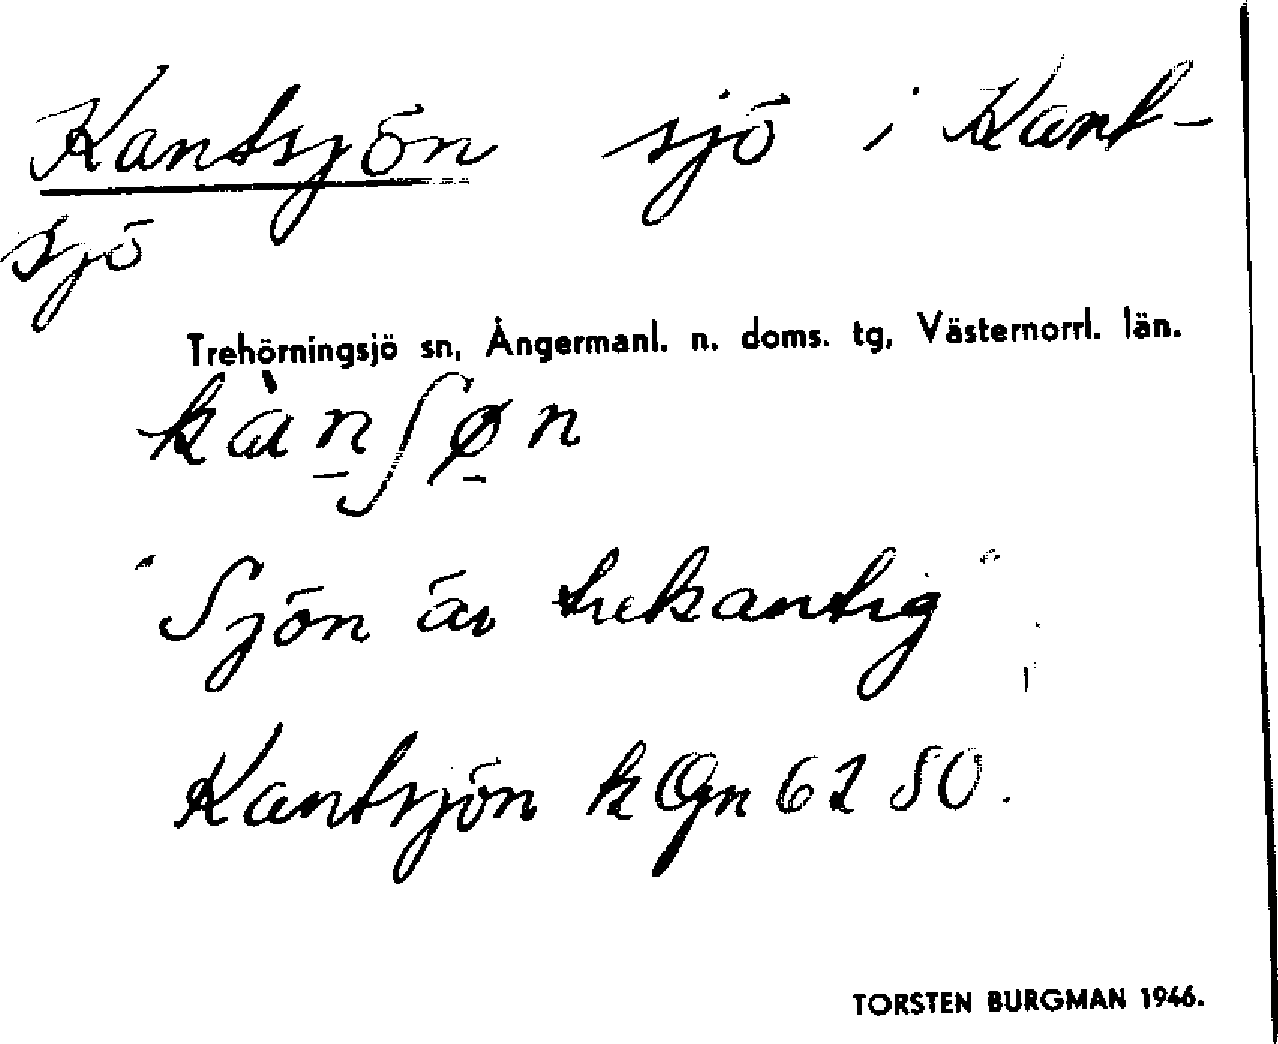 Kantsjön sjö i Kant-
sjö
Trehörningsjö sn, Ångermanl. n. doms. tg, Västernorrl. län.
kàn̠ʃø̠n
"Sjön är trekantig".
Kantsjön k Gn 62 80.
TORSTEN BURGMAN 1946.